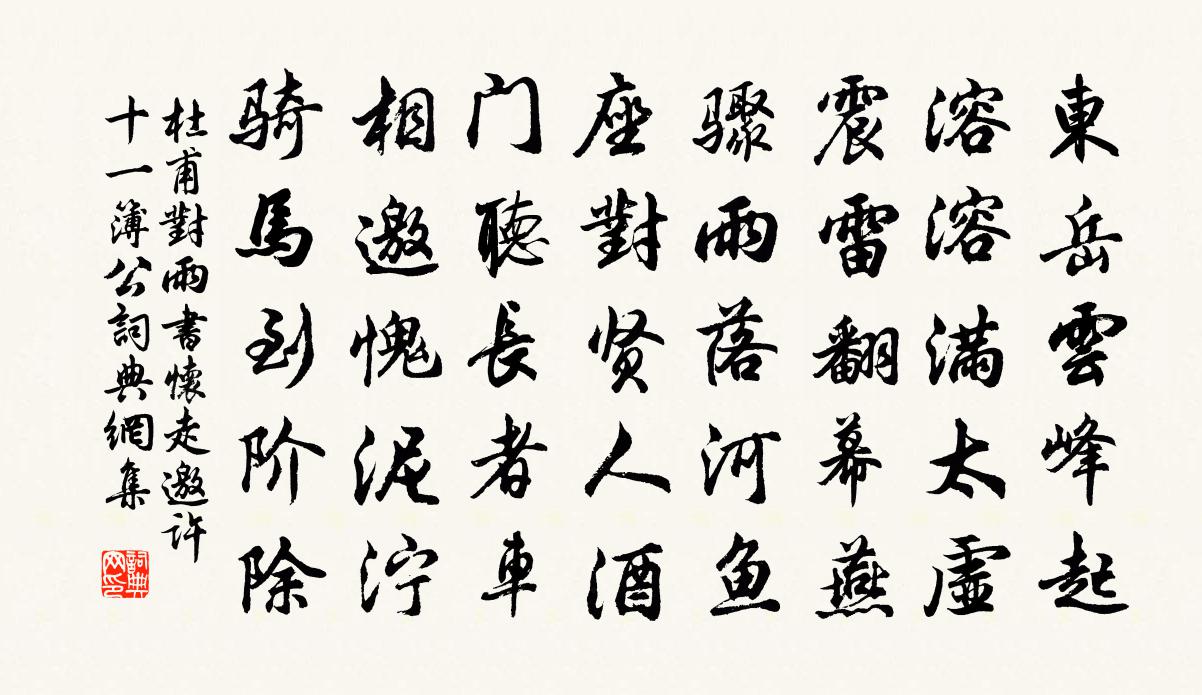 東岳雲峰起
溶溶滿太虛
震雷翻幕燕
骤雨落河鱼
座對贤人酒
门聽長者車
相邀愧泥泞
骑馬到阶除
杜甫對雨書懷走邀許
十一簿公詞典網集
詞典
网印